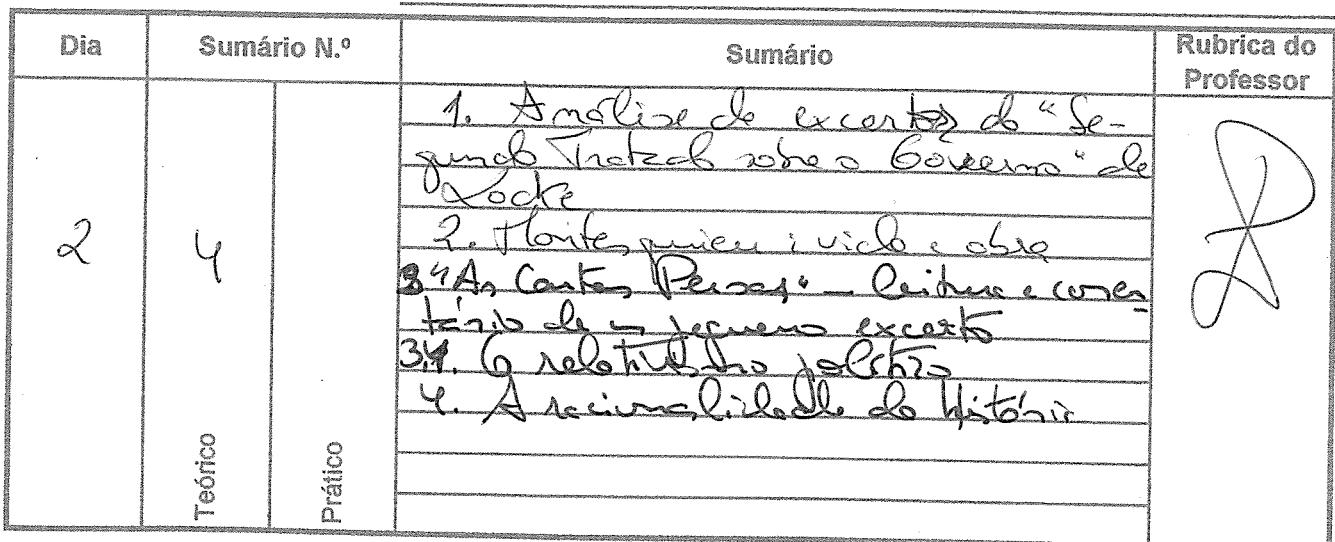 Dia
Sumário N.º
Sumário
Rubrica do
Professor
2
4
Teórico
Prático
1. Análise de excertos do "Se-
gundo Tratado sobre o Governo" de
Locke
2. Montesquieu: vida e obra
3. "As Cartas Persas" - leitura e comen-
tário de um pequeno excerto
3.1. O relativismo político
4. A racionalidade da História